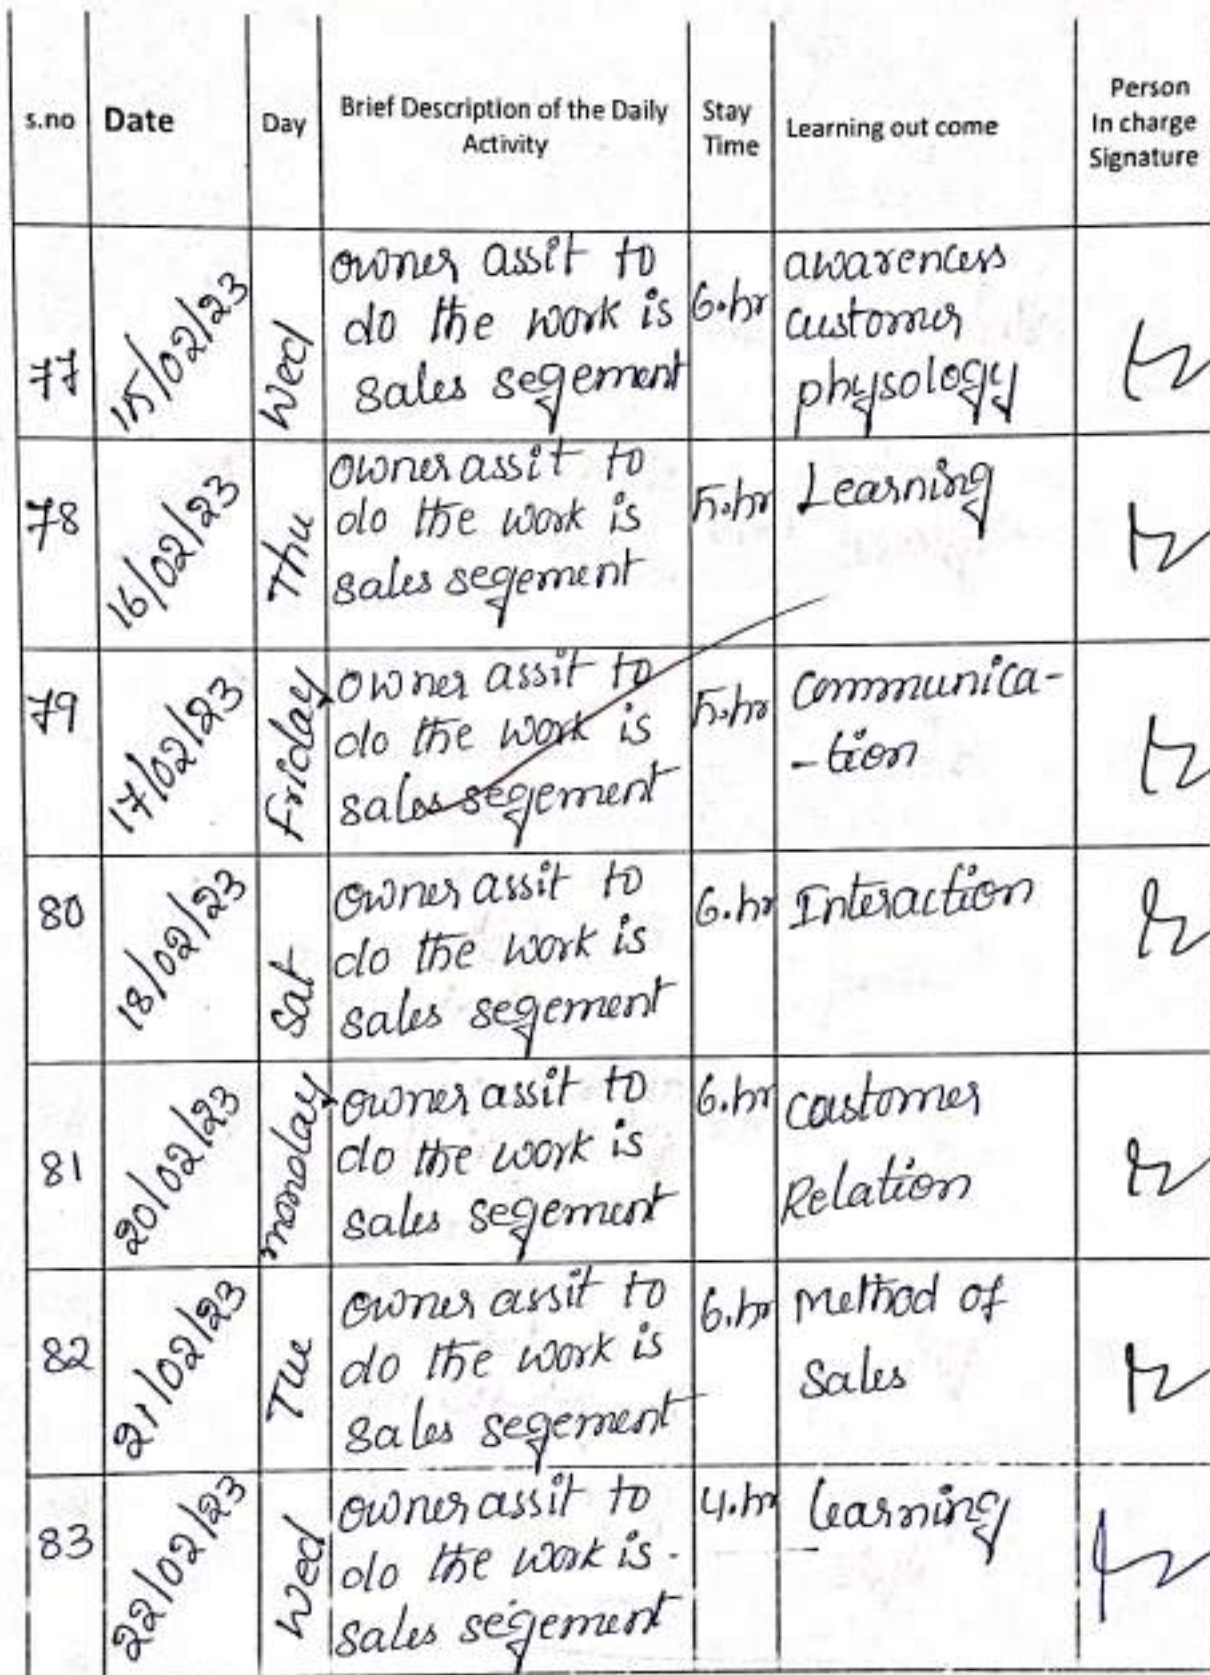 s.no Date Day Brief Description of the Daily Activity Stay Time Learning out come Person In charge Signature
77 15/02/23 Wed owner assit to
do the work is
sales segement 6.hr awareness
customer
physology
78 16/02/23 Thu owner assit to
do the work is
sales segement 5.hr Learning
79 17/02/23 Friday owner assit to
do the work is
sales segement 5.hr Communica-
-tion
80 18/02/23 Sat owner assit to
do the work is
sales segement 6.hr Interaction
81 20/02/23 monday owner assit to
do the work is
sales segement 6.hr Customer
Relation
82 21/02/23 Tue owner assit to
do the work is
sales segement 6.hr Method of
Sales
83 22/02/23 Wed owner assit to
do the work is.
sales segement 4.hr learning